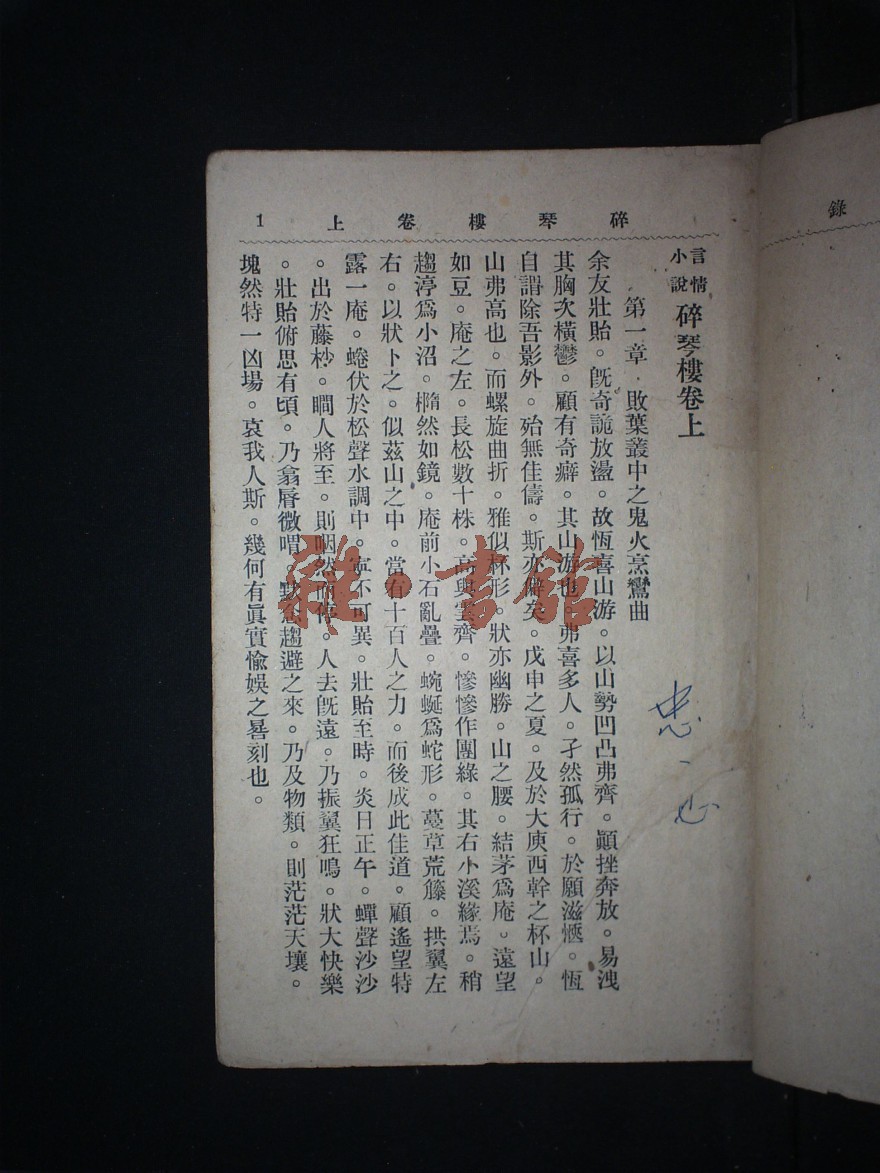 碎琴樓卷上 1
錄
言情
小說
碎琴樓卷上
第一章 敗葉叢中之鬼火烹鸞曲
余友壯貽。既奇詭放盪。故恆喜山游。以山勢凹凸弗齊。顚挫奔放。易洩
其胸次橫鬱。顧有奇癖。其山游也。弗喜多人。孑然孤行。於願滋愜。恆
自謂除吾影外。殆無佳儔。斯亦僻矣。戊申之夏。及於大庾西幹之杯山。
山弗高也。而螺旋曲折。雅似杯形。狀亦幽勝。山之腰。結茅爲庵。遠望
如豆。庵之左。長松數十株。高與雲齊。慘慘作團綠。其右小溪緣焉。稍
趨渟爲小沼。橢然如鏡。庵前小石亂疊。蜿蜒爲蛇形。蔓草荒籐。拱翼左
右。以狀卜之。似茲山之中。當有十百人之力。而後成此佳道。顧遙望特
露一庵。蜷伏於松聲水調中。寧不可異。壯貽至時。炎日正午。蟬聲沙沙
。出於藤杪。瞷人將至。則咽然而停。人去既遠。乃振翼狂鳴。狀大快樂
。壯貽俯思有頃。乃翕脣微喟。默念趨避之來。乃及物類。則茫茫天壤。
塊然特一凶場。哀我人斯。幾何有眞實愉娛之晷刻也。
雜·書館